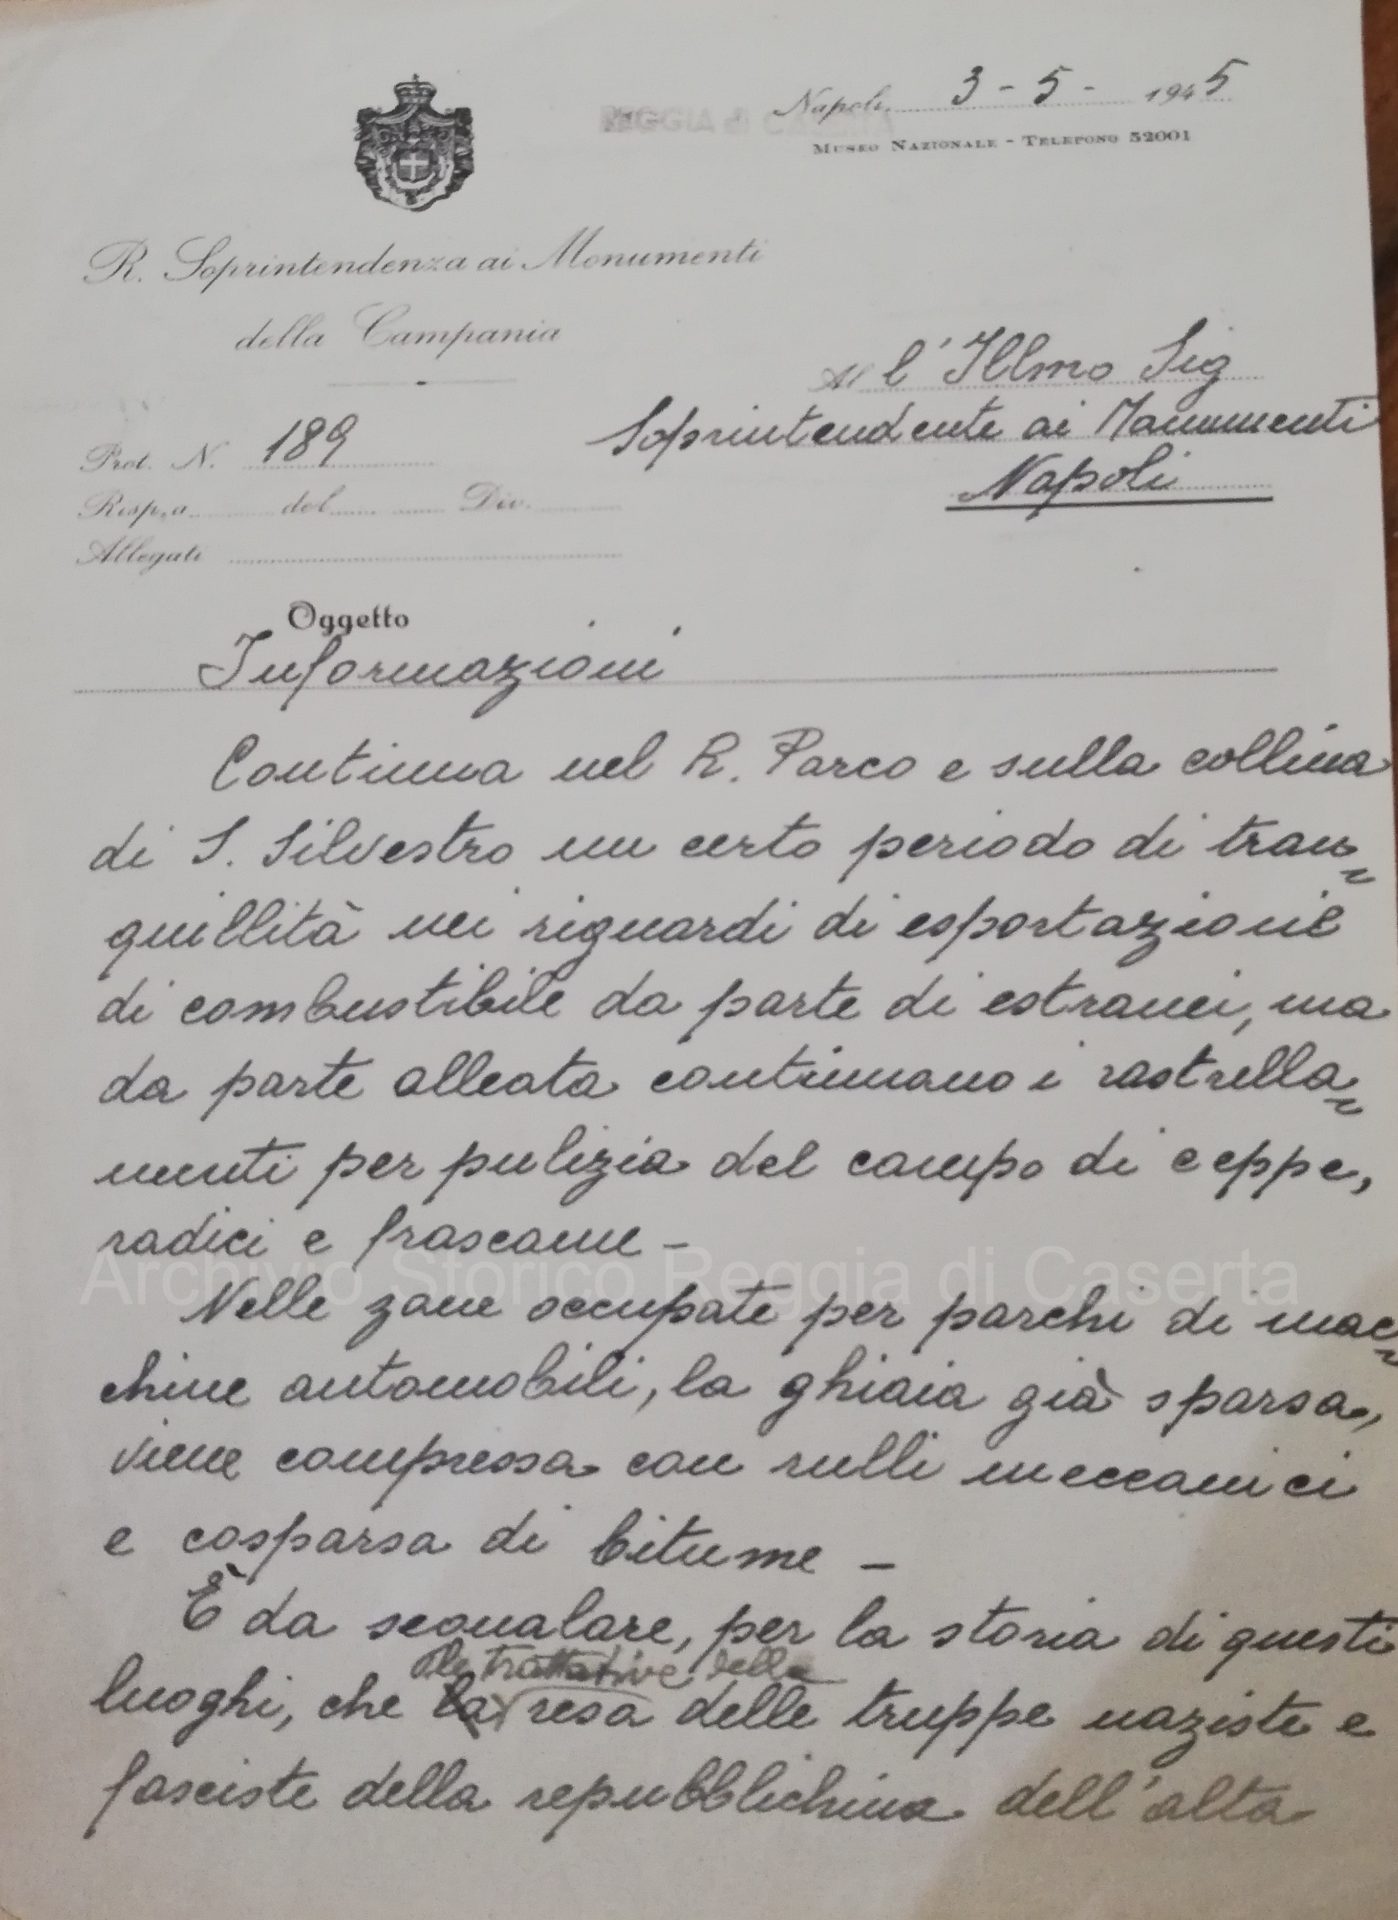 Napoli, 3 - 5 - 1945
REGGIA di CASERTA
MUSEO NAZIONALE - TELEFONO 52001
R. Soprintendenza ai Monumenti
della Campania
Al l'Illmo Sig
Soprintendente ai Monumenti
Napoli
Prot. N. 189
Risp. a del Div.
Allegati
Oggetto
Informazioni
Continua nel R. Parco e sulla collina
di S. Silvestro un certo periodo di tran=
quillità nei riguardi di esportazione
di combustibile da parte di estranei, ma
da parte alleata continuano i rastrella=
menti per pulizia del campo di ceppe,
radici e frascame -
Archivio Storico Reggia di Caserta
Nelle zone occupate per parchi di mac=
chine automobili, la ghiaia già sparsa,
viene compressa con rulli meccanici
e cosparsa di bitume -
È da segnalare, per la storia di questi
le trattative della
luoghi, che la resa delle truppe naziste e
fasciste della repubblichina dell'alta